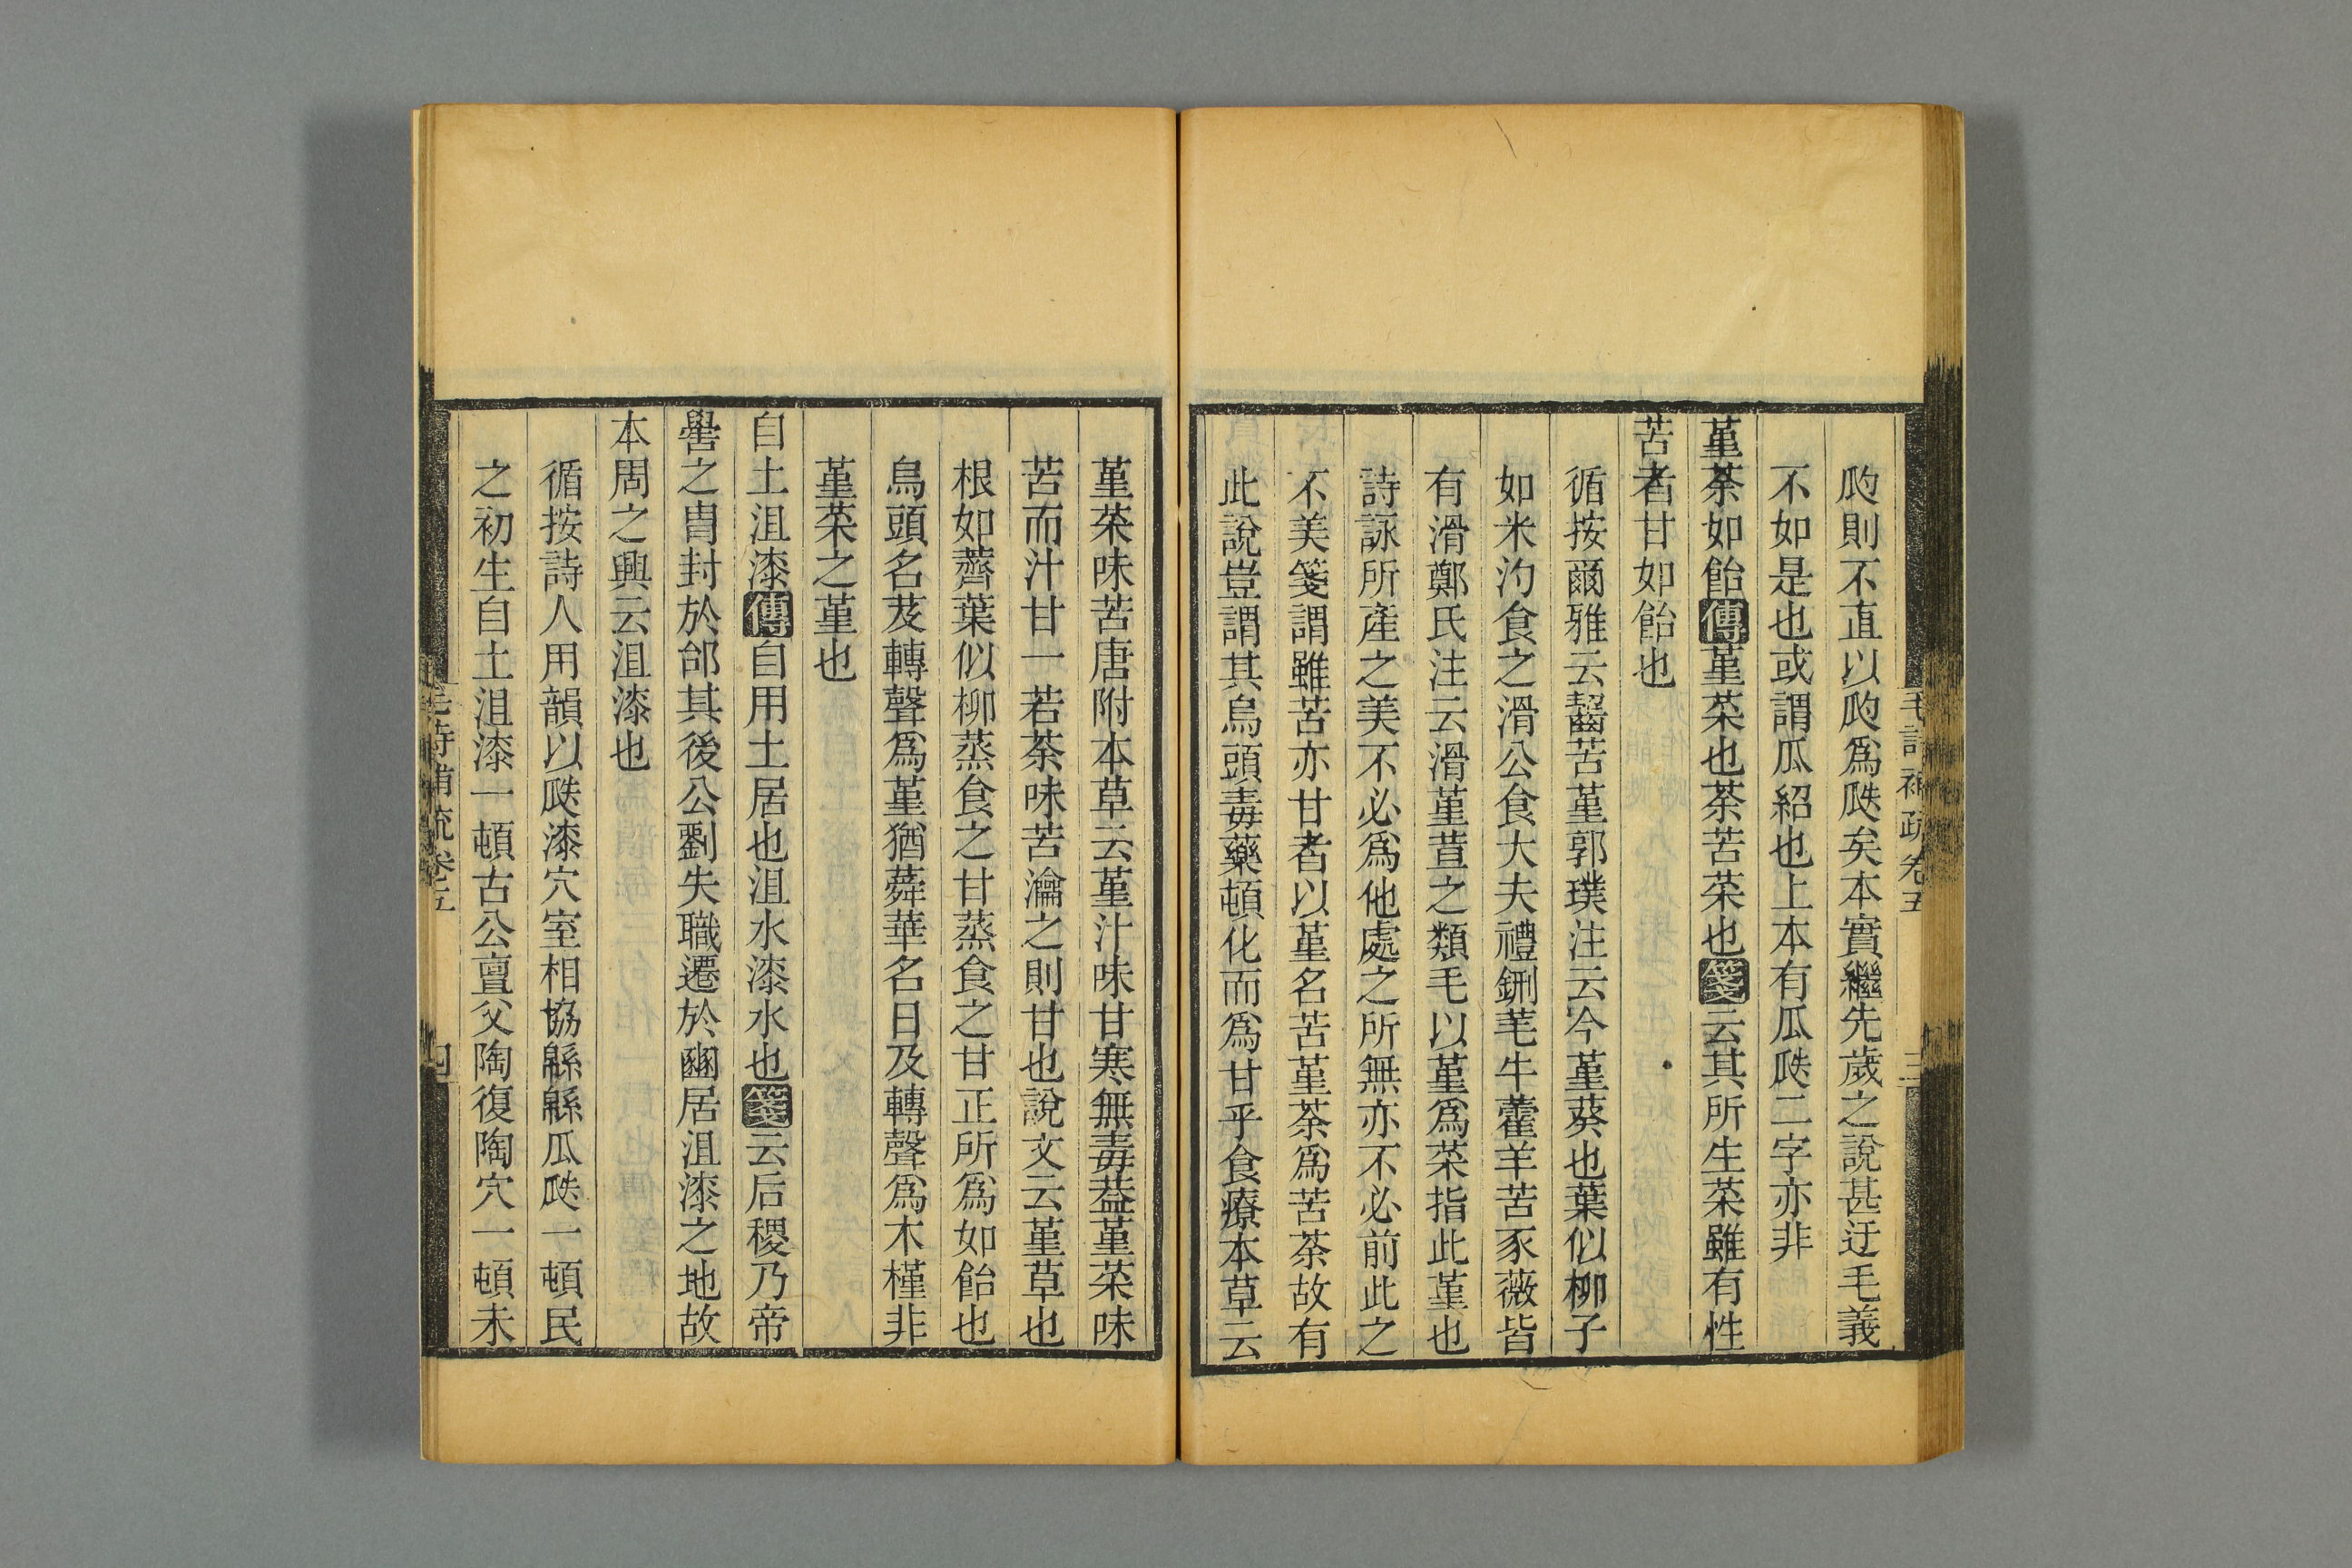 瓝則不直以瓝爲瓞矣本實繼先歲之說甚迂毛義
不如是也或謂瓜紹也上本有瓜瓞二字亦非
堇荼如飴傳堇菜也荼苦菜也箋云其所生菜雖有性
苦者甘如飴也
循按爾雅云齧苦堇郭璞注云今堇葵也葉似柳子
如米汋食之滑公食大夫禮鉶芼牛藿羊苦豕薇皆
有滑鄭氏注云滑堇荁之類毛以堇爲菜指此堇也
詩詠所産之美不必爲他處之所無亦不必前此之
不美箋謂雖苦亦甘者以堇名苦堇荼爲苦荼故有
此說豈謂其烏頭毒藥頓化而爲甘乎食療本草云
毛詩補疏卷五
三
堇菜味苦唐附本草云堇汁味甘寒無毒葢堇菜味
苦而汁甘一若荼味苦瀹之則甘也說文云堇草也
根如薺葉似柳蒸食之甘蒸食之甘正所爲如飴也
烏頭名芨轉聲爲堇猶蕣華名日及轉聲爲木槿非
堇菜之堇也
自土沮漆傳自用土居也沮水漆水也箋云后稷乃帝
嚳之胄封於邰其後公劉失職遷於豳居沮漆之地故
本周之興云沮漆也
循按詩人用韻以瓞漆穴室相協緜緜瓜瓞一頓民
之初生自土沮漆一頓古公亶父陶復陶穴一頓未
毛詩補疏卷五
四